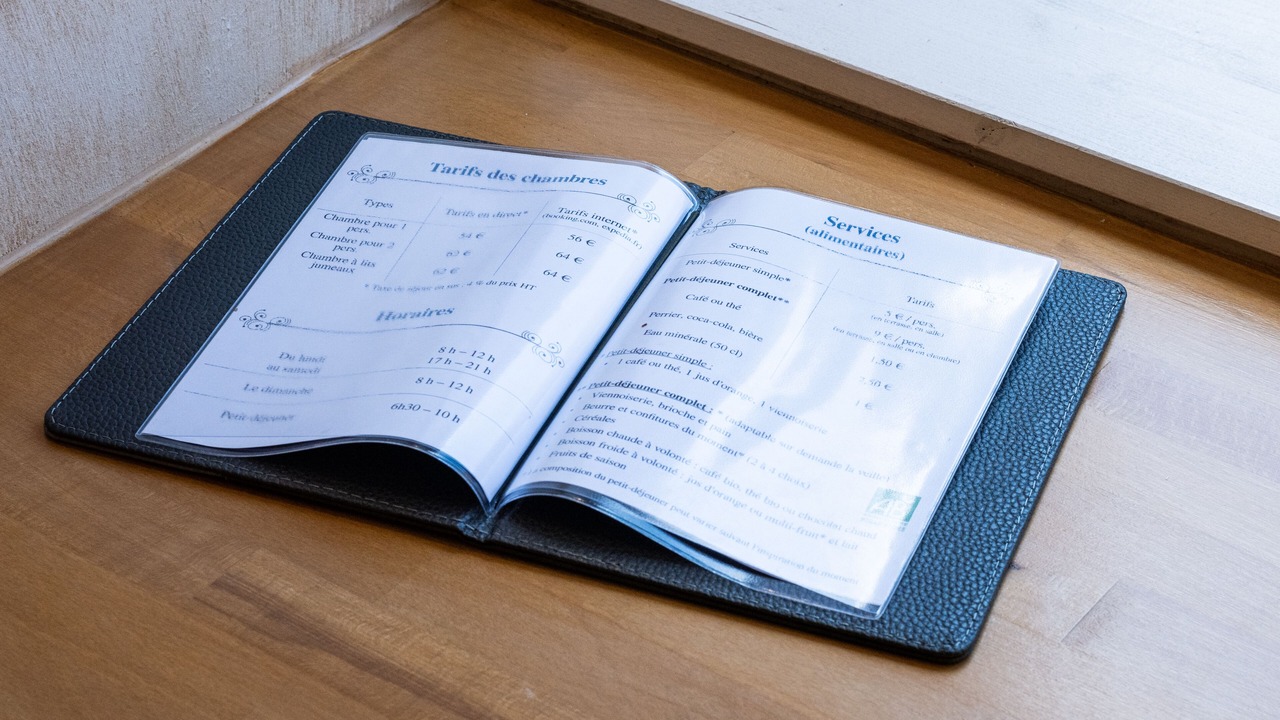 Tarifs des chambres
Types
Tarifs en direct*
Tarifs internet*
(booking.com, expedia.fr)
Chambre pour 1
pers.
54 €
56 €
Chambre pour 2
pers.
62 €
64 €
Chambre à lits
jumeaux
62 €
64 €
* Taxe de séjour en sus : 4 % du prix HT
Horaires
Du lundi
au samedi
8 h – 12 h
17 h – 21 h
Le dimanche
8 h – 12 h
Petit-déjeuner
6h30 – 10 h
Services
(alimentaires)
Services
Tarifs
Petit-déjeuner simple*
5 € / pers.
(en terrasse, en salle)
Petit-déjeuner complet**
9 € / pers.
(en terrasse, en salle ou en chambre)
Café ou thé
1,50 €
Perrier, coca-cola, bière
2,50 €
Eau minérale (50 cl)
1 €
* Petit-déjeuner simple :
- 1 café ou thé, 1 jus d'orange, 1 viennoiserie
** Petit-déjeuner complet : * (adaptable sur demande la veille)
- Viennoiserie, brioche et pain
- Beurre et confitures du moment* (2 à 4 choix)
- Céréales
- Boisson chaude à volonté : café bio, thé bio ou chocolat chaud
- Boisson froide à volonté : jus d'orange ou multi-fruit* et lait
- Fruits de saison
composition du petit-déjeuner peut varier suivant l'inspiration du moment
AB